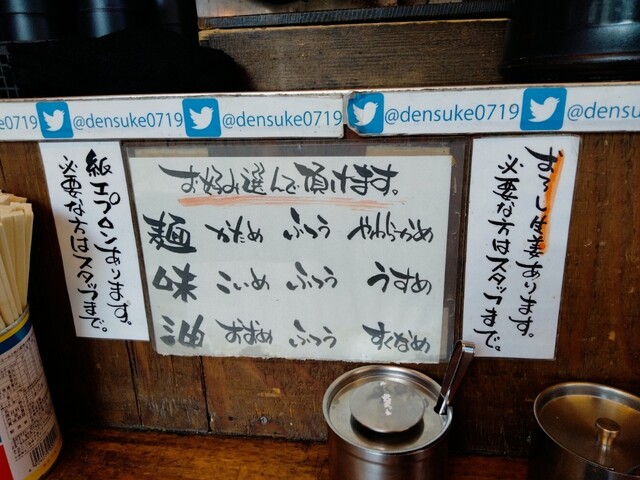 e0719 @densuke0719 @densuke0719 @densuke0719 @densu
紙エプロンあります。
必要な方はスタッフまで。
お好み選んで頂けます。
麺 かため ふつう やわらかめ
味 こいめ ふつう うすめ
油 おおめ ふつう すくなめ
おろし生姜あります。
必要な方はスタッフまで。